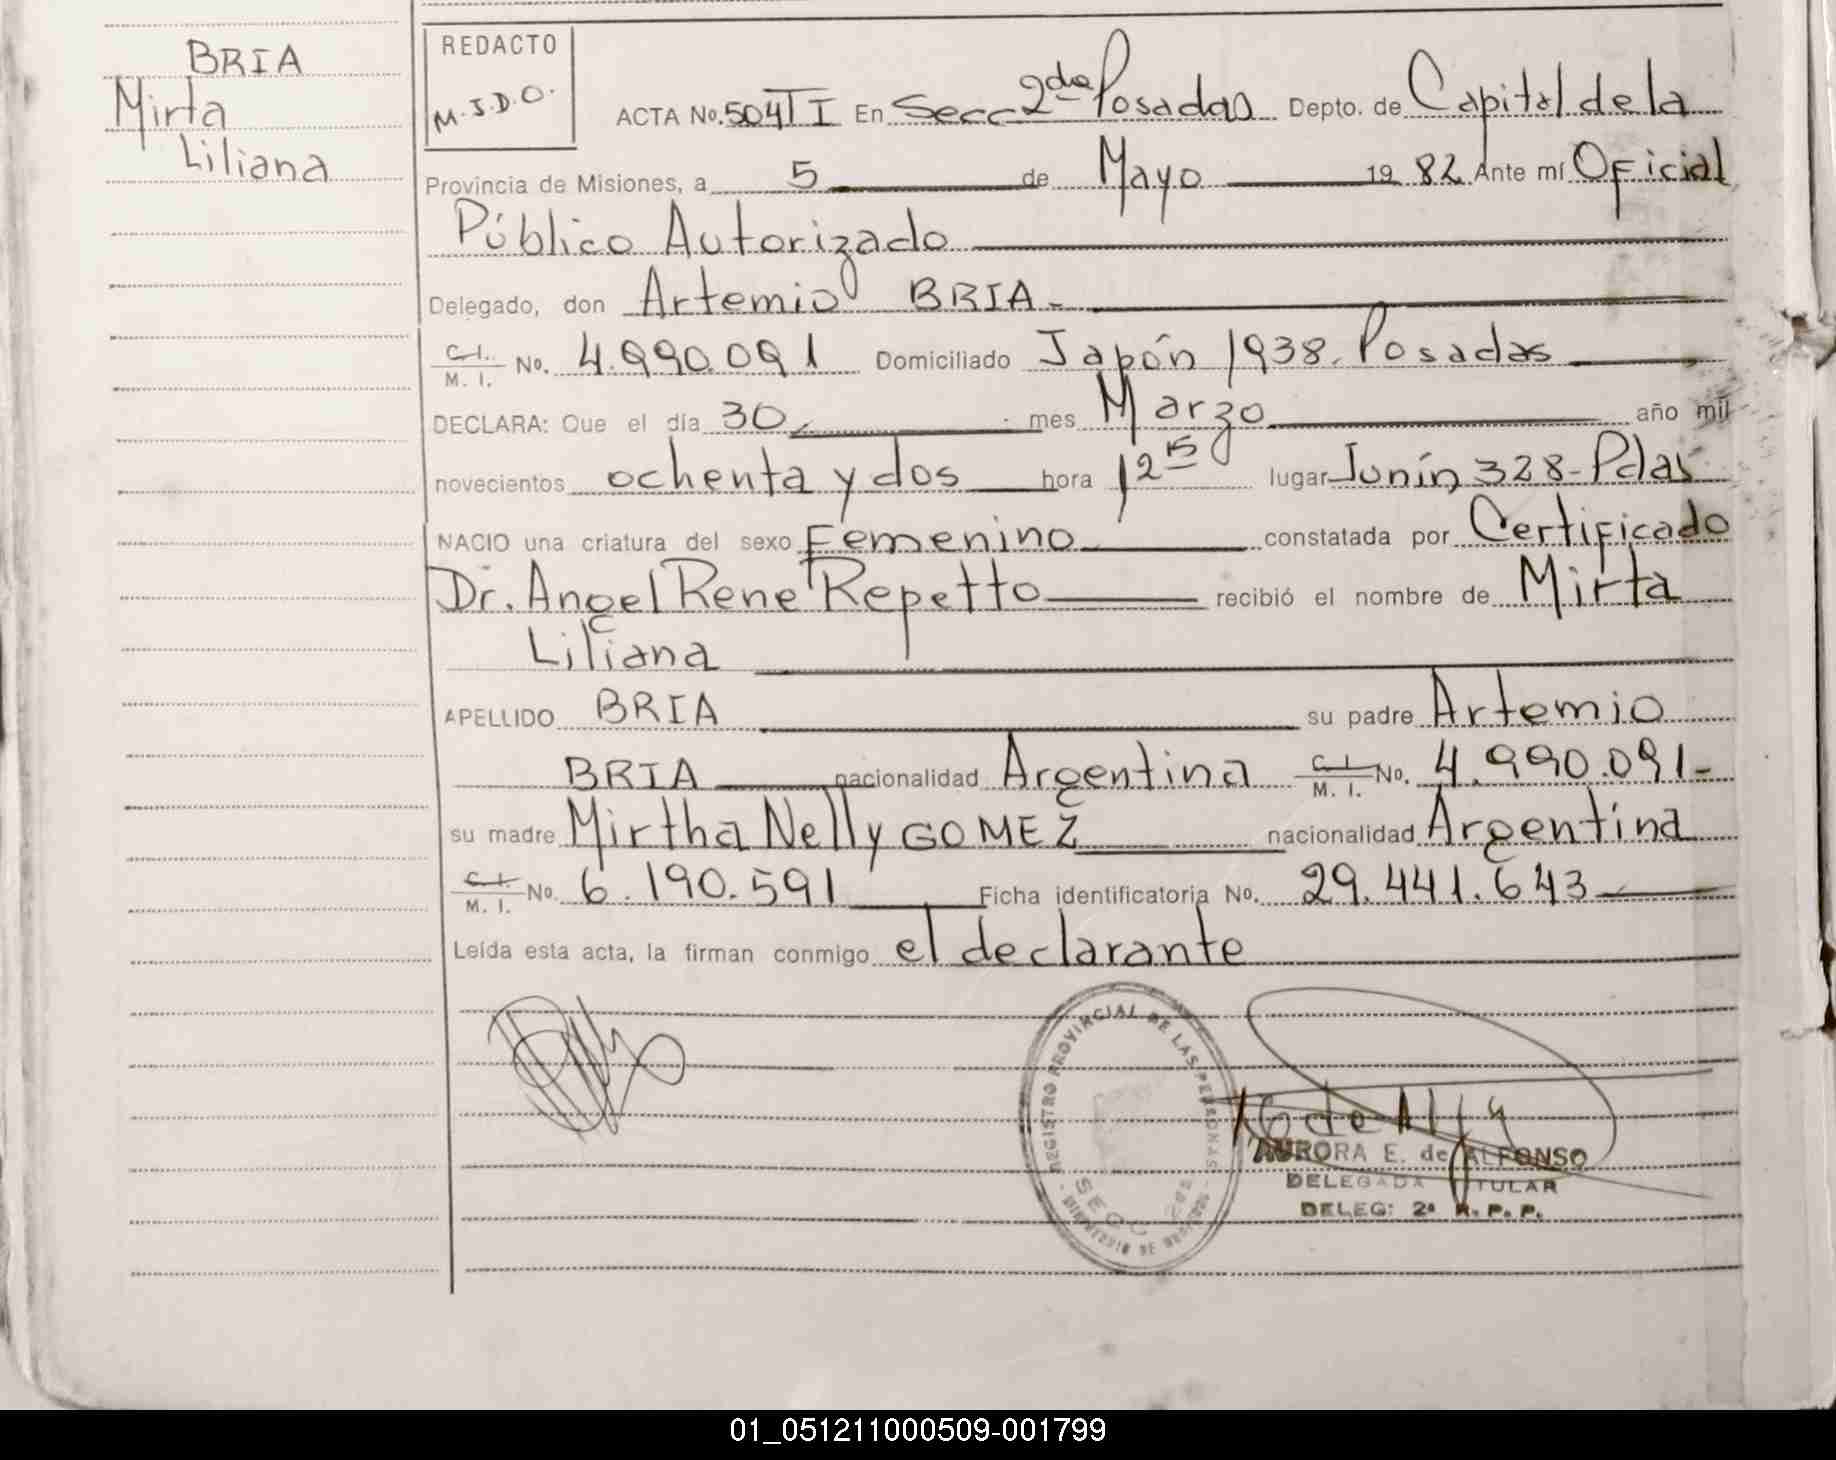 BRIA
Mirta
Liliana
REDACTO
M.J.D.O.
ACTA No. 504 TI En Secc 2da Posadas Depto. de Capital de la
Provincia de Misiones, a 5 de Mayo 19 82 Ante mí Oficial
Público Autorizado
Delegado, don Artemio BRIA.-
C.I. M.I. No. 4.990.091 Domiciliado Japón 1938. Posadas
DECLARA: Que el día 30 mes Marzo año mil
novecientos ochenta y dos hora 12 15 lugar Junín 328-Pdas
NACIO una criatura del sexo Femenino constatada por Certificado
Dr. Angel Rene Repetto recibió el nombre de Mirta
Liliana
APELLIDO BRIA su padre Artemio
BRIA nacionalidad Argentina C.I. M.I. No. 4.990.091-
su madre Mirtha Nelly GOMEZ nacionalidad Argentina
C.I. M.I. No. 6.190.591 Ficha identificatoria No. 29.441.643
Leída esta acta, la firman conmigo el declarante
REGISTRO PROVINCIAL DE LAS PERSONAS
SECC
AURORA E. de ALFONSO
DELEGADA TITULAR
DELEG: 2ª R. P. P.
01_051211000509-001799